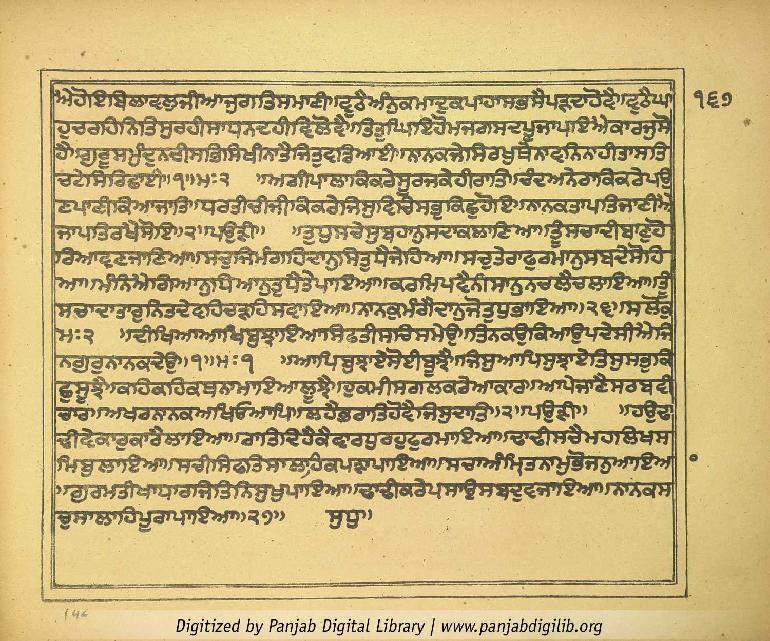 ਐ ਹੋਇ ਬਿਲਾਵਲੁ ਜੀਆ ਜੁਗਤਿ ਸਮਾਣੀ॥ ਵੁਠੈ ਅੰਨੁ ਕਮਾਦੁ ਕਪਾਹਾ ਸਭਸੈ ਪੜਦਾ ਹੋਵੈ॥ ਵੁਠੈ ਘਾ ੧੬੭
ਹੁ ਚਰਹਿ ਨਿਤਿ ਸੁਰਹੀ ਸਾ ਧਨ ਦਹੀ ਵਿਲੋਵੈ॥ ਤਿਤੁ ਘਿਇ ਹੋਮ ਜਗ ਸਦ ਪੂਜਾ ਪਇਐ ਕਾਰਜੁ ਸੋ
ਹੈ॥ ਗੁਰੂ ਸਮੁੰਦੁ ਨਦੀ ਸਭਿ ਸਿਖੀ ਨਾਤੈ ਜਿਤੁ ਵਡਿਆਈ॥ ਨਾਨਕ ਜੇ ਸਿਰਖੁਥੇ ਨਾਵਨਿ ਨਾਹੀ ਤਾ ਸਤਿ
ਚਟੇ ਸਿਰਿ ਛਾਈ॥੧॥ ਮਃ ੨ ॥ ਅਗੀ ਪਾਲਾ ਕਿ ਕਰੇ ਸੂਰਜ ਕੇਹੀ ਰਾਤਿ॥ ਚੰਦ ਅਨੇਰਾ ਕਿ ਕਰੇ ਪਉ
ਣ ਪਾਣੀ ਕਿਆ ਜਾਤਿ॥ ਧਰਤੀ ਚੀਜੀ ਕਿ ਕਰੇ ਜਿਸੁ ਵਿਚਿ ਸਭੁ ਕਿਛੁ ਹੋਇ॥ ਨਾਨਕ ਤਾ ਪਤਿ ਜਾਣੀਐ
ਜਾ ਪਤਿ ਰਖੈ ਸੋਇ॥੨॥ ਪਉੜੀ॥ ॥ ਤੁਧੁ ਸਚੇ ਸੁਬਹਾਨੁ ਸਦਾ ਕਲਾਣਿਆ॥ ਤੂੰ ਸਚਾ ਦੀਬਾਣੁ ਹੋ
ਰਿ ਆਵਣ ਜਾਣਿਆ॥ ਸਚੁ ਜਿ ਮੰਗਹਿ ਦਾਨੁ ਸਿ ਤੁਧੈ ਜੇਹਿਆ॥ ਸਚੁ ਤੇਰਾ ਫੁਰਮਾਨੁ ਸਬਦੇ ਸੋਹਿ
ਆ॥ ਮੰਨਿਐ ਗਿਆਨੁ ਧਿਆਨੁ ਤੁਧੈ ਤੇ ਪਾਇਆ॥ ਕਰਮਿ ਪਵੈ ਨੀਸਾਨੁ ਨ ਚਲੈ ਚਲਾਇਆ॥ ਤੂੰ
ਸਚਾ ਦਾਤਾਰੁ ਨਿਤ ਦੇਵਹਿ ਚੜਹਿ ਸਵਾਇਆ॥ ਨਾਨਕੁ ਮੰਗੈ ਦਾਨੁ ਜੋ ਤੁਧੁ ਭਾਇਆ॥੨੬॥ ਸਲੋਕੁ
ਮਃ ੨ ॥ ਦੀਖਿਆ ਆਖਿ ਬੁਝਾਇਆ ਸਿਫਤੀ ਸਚਿ ਸਮੇਉ॥ ਤਿਨ ਕਉ ਕਿਆ ਉਪਦੇਸੀਐ ਜਿ
ਨ ਗੁਰੁ ਨਾਨਕ ਦੇਉ॥੧॥ ਮਃ ੧ ॥ ਆਪਿ ਬੁਝਾਏ ਸੋਈ ਬੂਝੈ॥ ਜਿਸੁ ਆਪਿ ਸੁਝਾਏ ਤਿਸੁ ਸਭੁ ਕਿ
ਛੁ ਸੂਝੈ॥ ਕਹਿ ਕਹਿ ਕਥਨਾ ਮਾਇਆ ਲੂਝੈ॥ ਹੁਕਮੀ ਸਗਲ ਕਰੇ ਆਕਾਰ॥ ਆਪੇ ਜਾਣੈ ਸਰਬ ਵੀ
ਚਾਰ॥ ਅਖਰ ਨਾਨਕ ਅਖਿਓ ਆਪਿ॥ ਲਹੈ ਭਰਾਤਿ ਹੋਵੈ ਜਿਸੁ ਦਾਤਿ॥੨॥ ਪਉੜੀ॥ ॥ ਹਉ ਢਾ
ਢੀ ਵੇਕਾਰੁ ਕਾਰੈ ਲਾਇਆ॥ ਰਾਤਿ ਦਿਹੈ ਕੈ ਵਾਰ ਧੁਰਹੁ ਫੁਰਮਾਇਆ॥ ਢਾਢੀ ਸਚੈ ਮਹਲਿ ਖਸ
ਮਿ ਬੁਲਾਇਆ॥ ਸਚੀ ਸਿਫਤਿ ਸਾਲਾਹ ਕਪੜਾ ਪਾਇਆ॥ ਸਚਾ ਅੰਮ੍ਰਿਤ ਨਾਮੁ ਭੋਜਨੁ ਆਇਆ
॥ ਗੁਰਮਤੀ ਖਾਧਾ ਰਜਿ ਤਿਨਿ ਸੁਖੁ ਪਾਇਆ॥ ਢਾਢੀ ਕਰੇ ਪਸਾਉ ਸਬਦੁ ਵਜਾਇਆ॥ ਨਾਨਕ ਸ
ਚੁ ਸਾਲਾਹਿ ਪੂਰਾ ਪਾਇਆ॥੨੭॥ ਸੁਧੁ॥
Digitized by Panjab Digital Library | www.panjabdigilib.org